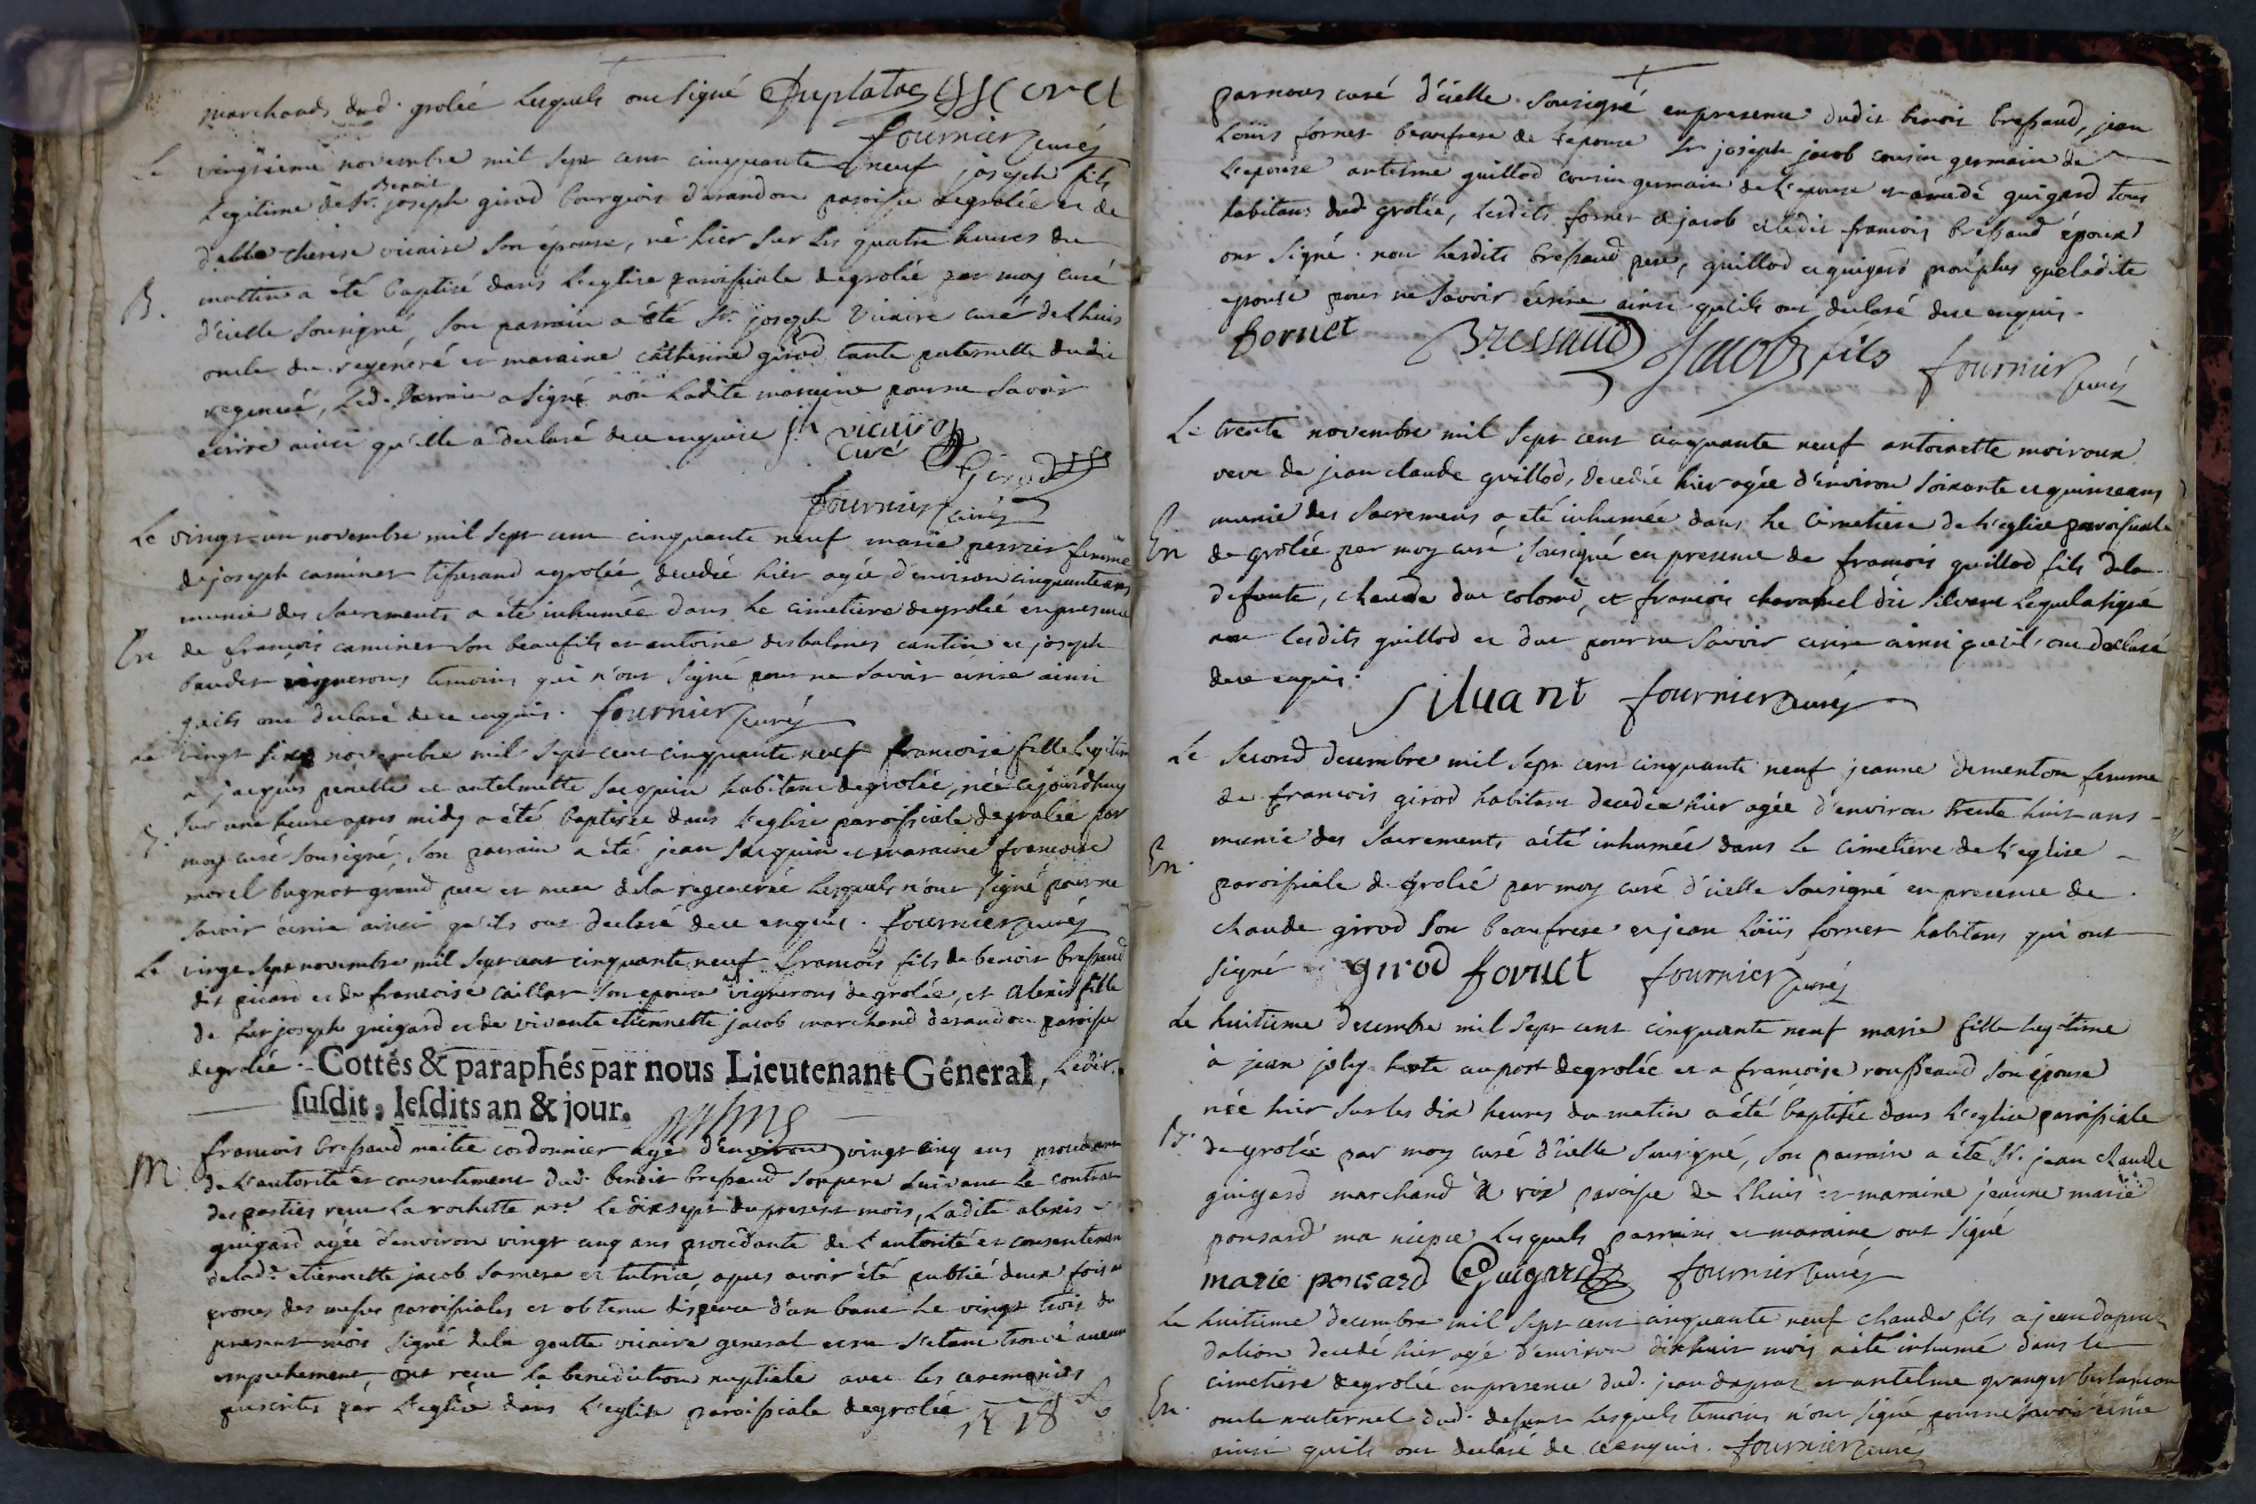 marchands dud. grolée lesquels ont signé Duplatre
fournier curé
Le vingtieme novembre mil sept cent cinquante neuf joseph fils
Benoit
Legitime de Sr. joseph girod bourgeois darandon paroisse de grolée et de
vicaire son épouse, né hier sur les quatre heures du
B. mattin a été baptisé dans L'eglise paroissiale de grolée par moy curé
d'icelle sousigné, son parrain a été Sr. joseph vicaire curé de Lhuis
oncle du régeneré et maraine catherine girod tante paternelle dudit
regeneré, led. Parrain a signé non ladite maraine pour ne savoir
écrire ainsi qu'elle a declaré de ce enquise
curé
Girod
fournier curé
Le vingt un novembre mil sept cent cinquante neuf marie perrier femme
de joseph caminet tisserand a grolée, decedée hier agée d'environ cinquante ans
munie des sacrements a été inhumée dans le cimetiere de grolée en presence
En de françois caminet son beaufils et antoine desbalmes cantin et joseph
baudet vignerons temoins qui n'ont signé pour ne savoir écrire ainsi
qu'ils ont declaré de ce enquis. fournier curé
Le vingt six novembre mil sept cent cinquante neuf francoise fille legitime
à jacques penelle et antelmette jacquin habitans de grolée, née ce jourdhuy
B. sur une heure apres midy a été baptisée dans L'eglise paroissiale de grolée par
moy curé sousigné, son parrain a été jean jacquin et maraine francoise
morel bugnot grand pere et mere de la regenerée lesquels n'ont signé pour ne
savoir écrire ainsi qu'ils ont declaré de ce enquis. fournier curé
Le vingt sept novembre mil sept cent cinquante neuf francois fils de benoit bressaud
dit picard et de francoise caillat son epouse vignerons de grolée, et alexis fille
de feu joseph guigard et de vivante etiennette jacob marchand darandon paroisse
de grolée. Cottés & paraphés par nous Lieutenant Géneral, Ledit
susdit, lesdits an & jour.
M francois bressaud maitre cordonnier agé d'environ vingt cinq ans procedant
de L'autorité et consentement dud. benoit bressaud son pere suivant le contrat
des parties recu La rochette nre. le dix sept du present mois, Ladite alexis
guigard agée d'environ vingt cinq ans procedante de L'autorité et consentement
de lade. etiennette jacob sa mere et tutrice apres avoir été publié deux fois aux
prones des messes paroissiales et obtenu dispence d'un banc le vingt trois du
present mois signé de la goutte vicaire general et ne s'etant trouvé aucun
empechement, ont recu la benediction nuptiale avec les ceremonies
prescrites par L'eglise dans L'eglise paroissiale de grolée
18
par nous curé d'icelle sousigné en presence dudit benoit bressaud, jean
Loüis fornet beaufrere de L'epouse Sr joseph jacob cousin germain de
L'epouse antelme guillod cousin germain de L'epouse et amedé guigard tous
habitans dud. grolée, lesdits fornet et jacob et ledit francois bressaud époux
ont signé. non lesdits bressaud pere, guillod et guigard non plus que ladite
epouse pour ne savoir écrire ainsi qu'ils ont declaré de ce enquis.
fornet Bressaud Jacob fils fournier curé
Le trente novembre mil sept cent cinquante neuf antoinette moiroux
veve de jean claude guillod, decedée hier agée d'environ soixante et quinze ans
munie des sacremens a été inhumée dans le cimetiere de L'eglise paroissiale
En de grolée par moy curé sousigné en presence de francois guillod fils de la
defunte, claude duc colomb, et francois charamel dit silvent lequel a signé
non lesdits guillod et duc pour ne savoir ecrire ainsi qu'il ont declaré
de ce enquis.
Siluant fournier curé
Le second decembre mil sept cent cinquante neuf jeanne dementon femme
de francois girod habitans decedée hier agée d'environ trente huit ans
munie des sacrements a été inhumée dans le cimetiere de L'eglise
En. paroissiale de grolée par moy curé d'icelle sousigné en presence de
claude girod son beaufrere et jean loüis fornet habitans qui ont
signé girod fornet fournier curé
Le huitieme decembre mil sept cent cinquante neuf marie fille legitime
à jean joly hote au port de grolée et a francoise rousseaud son épouse
née hier sur les dix heures du matin a été baptisée dans L'eglise paroissiale
B. de grolée par moy curé d'icelle sousigné, son parrain a été Sr. jean claude
guigard marchand à vix paroisse de Lhuis et maraine jeanne marie
ponsard ma niepce lesquels parrain et maraine ont signé
marie ponsard Guigard fournier curé
Le huitieme decembre mil sept cent cinquante neuf claude fils a jean daprat
dalion decedé hier agé d'environ dixhuit mois a été inhumé dans le
En. cimetiere de grolée en presence dud. jean daprat et antelme granger berlancon
oncle maternel dud. defunt lesquels temoins n'ont signé pour ne savoir ecrire
ainsi quils ont declaré de ce enquis. fournier curé